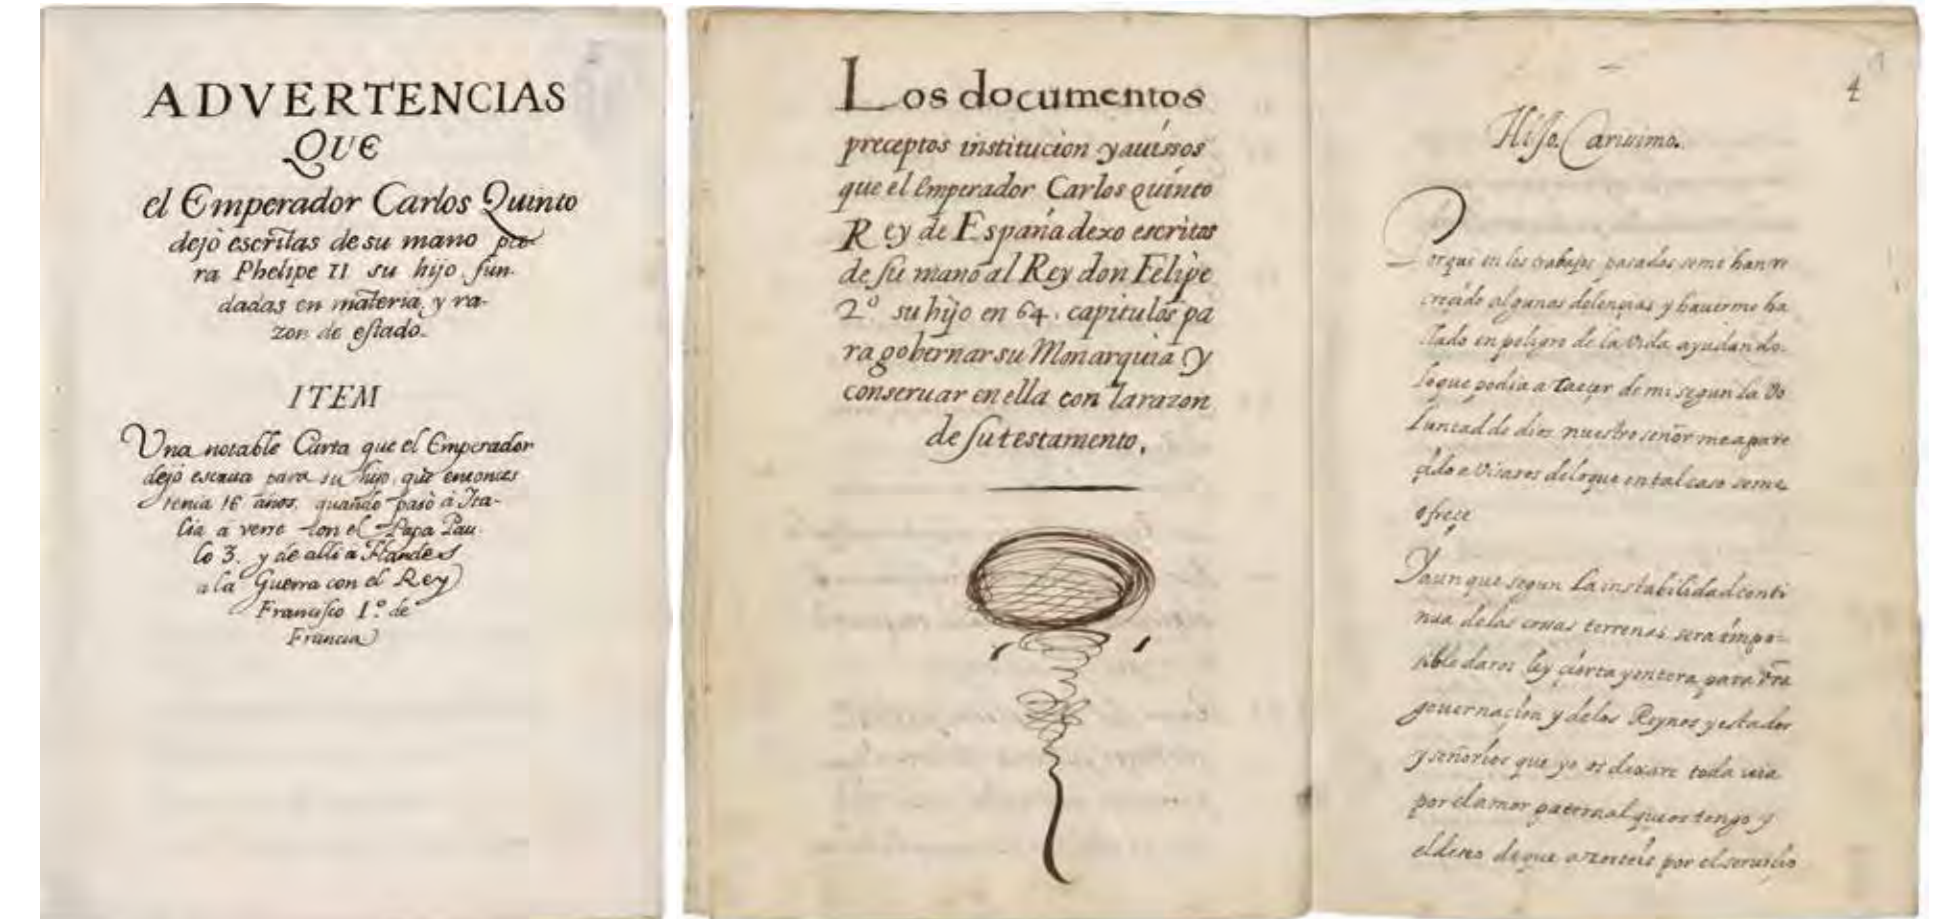 ADVERTENCIAS
QVE
el Emperador Carlos Quinto
dejò escritas de su mano pa-
ra Phelipe II su hijo, fun-
dadas en materia, y ra-
zon de estado.
ITEM
Una notable Carta que el Emperador
dejò escrita para su hijo, que entonces
tenia 16 años, quando pasò à Ita-
lia à verse con el Papa Pau-
lo 3. y de alli à Flandes
a la Guerra con el Rey
Francisco I.º de
Francia
Los documentos
preceptos institucion y auissos
que el Emperador Carlos quinto
Rey de España dexo escritos
de su mano al Rey don Felipe
2º su hijo en 64. capitulos pa
ra gobernar su Monarquia y
conseruar en ella con la razon
de su testamento.
4
Hijo Carisimo.
Porque en los trabajos pasados se me han re
creçido algunas dolençias y hauerme ha
llado en peligro de la vida ayudando.
lo que podia a caeçer de mi segun la vo
luntad de dios nuestro señor me a pare
çido avisaros de lo que en tal caso se me
ofreçe
Y aunque segun la instabilidad conti
nua de las cosas terrenas sera impo-
sible daros ley çierta y entera para vra
gouernaçion y de los Reynos y estados
y señorios que yo os dexare toda via
por el amor paternal que os tengo y
el deseo de que açerteis por el seruiçio